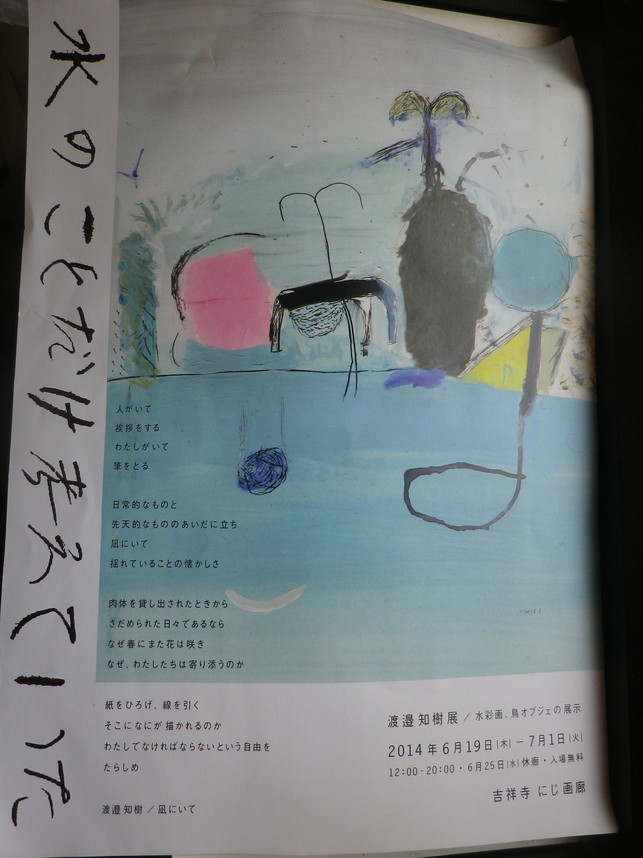 水のことだけ考えていた
人がいて
挨拶をする
わたしがいて
筆をとる
日常的なものと
先天的なもののあいだに立ち
凪にいて
揺れていることの懐かしさ
肉体を貸し出されたときから
さだめられた日々であるなら
なぜ春にまた花は咲き
なぜ、わたしたちは寄り添うのか
紙をひろげ、線を引く
そこになにが描かれるのか
わたしでなければならないという自由を
たらしめ
渡邉知樹 / 凪にいて
渡邉知樹展 / 水彩画、鳥オブジェの展示
2014年6月19日|木| ー 7月1日|火|
12:00-20:00・6月25日|水|休廊・入場無料
吉祥寺 にじ画廊